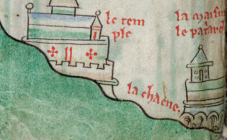 le tem
ple
la maisun
le pat
la chaene.